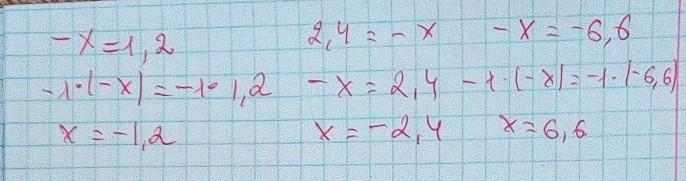 -x=1,2   2,4=-x   -x=-6,6
-1·(-x)=-1·1,2   -x=2,4   -1·(-x)=-1·(-6,6)
x=-1,2   x=-2,4   x=6,6